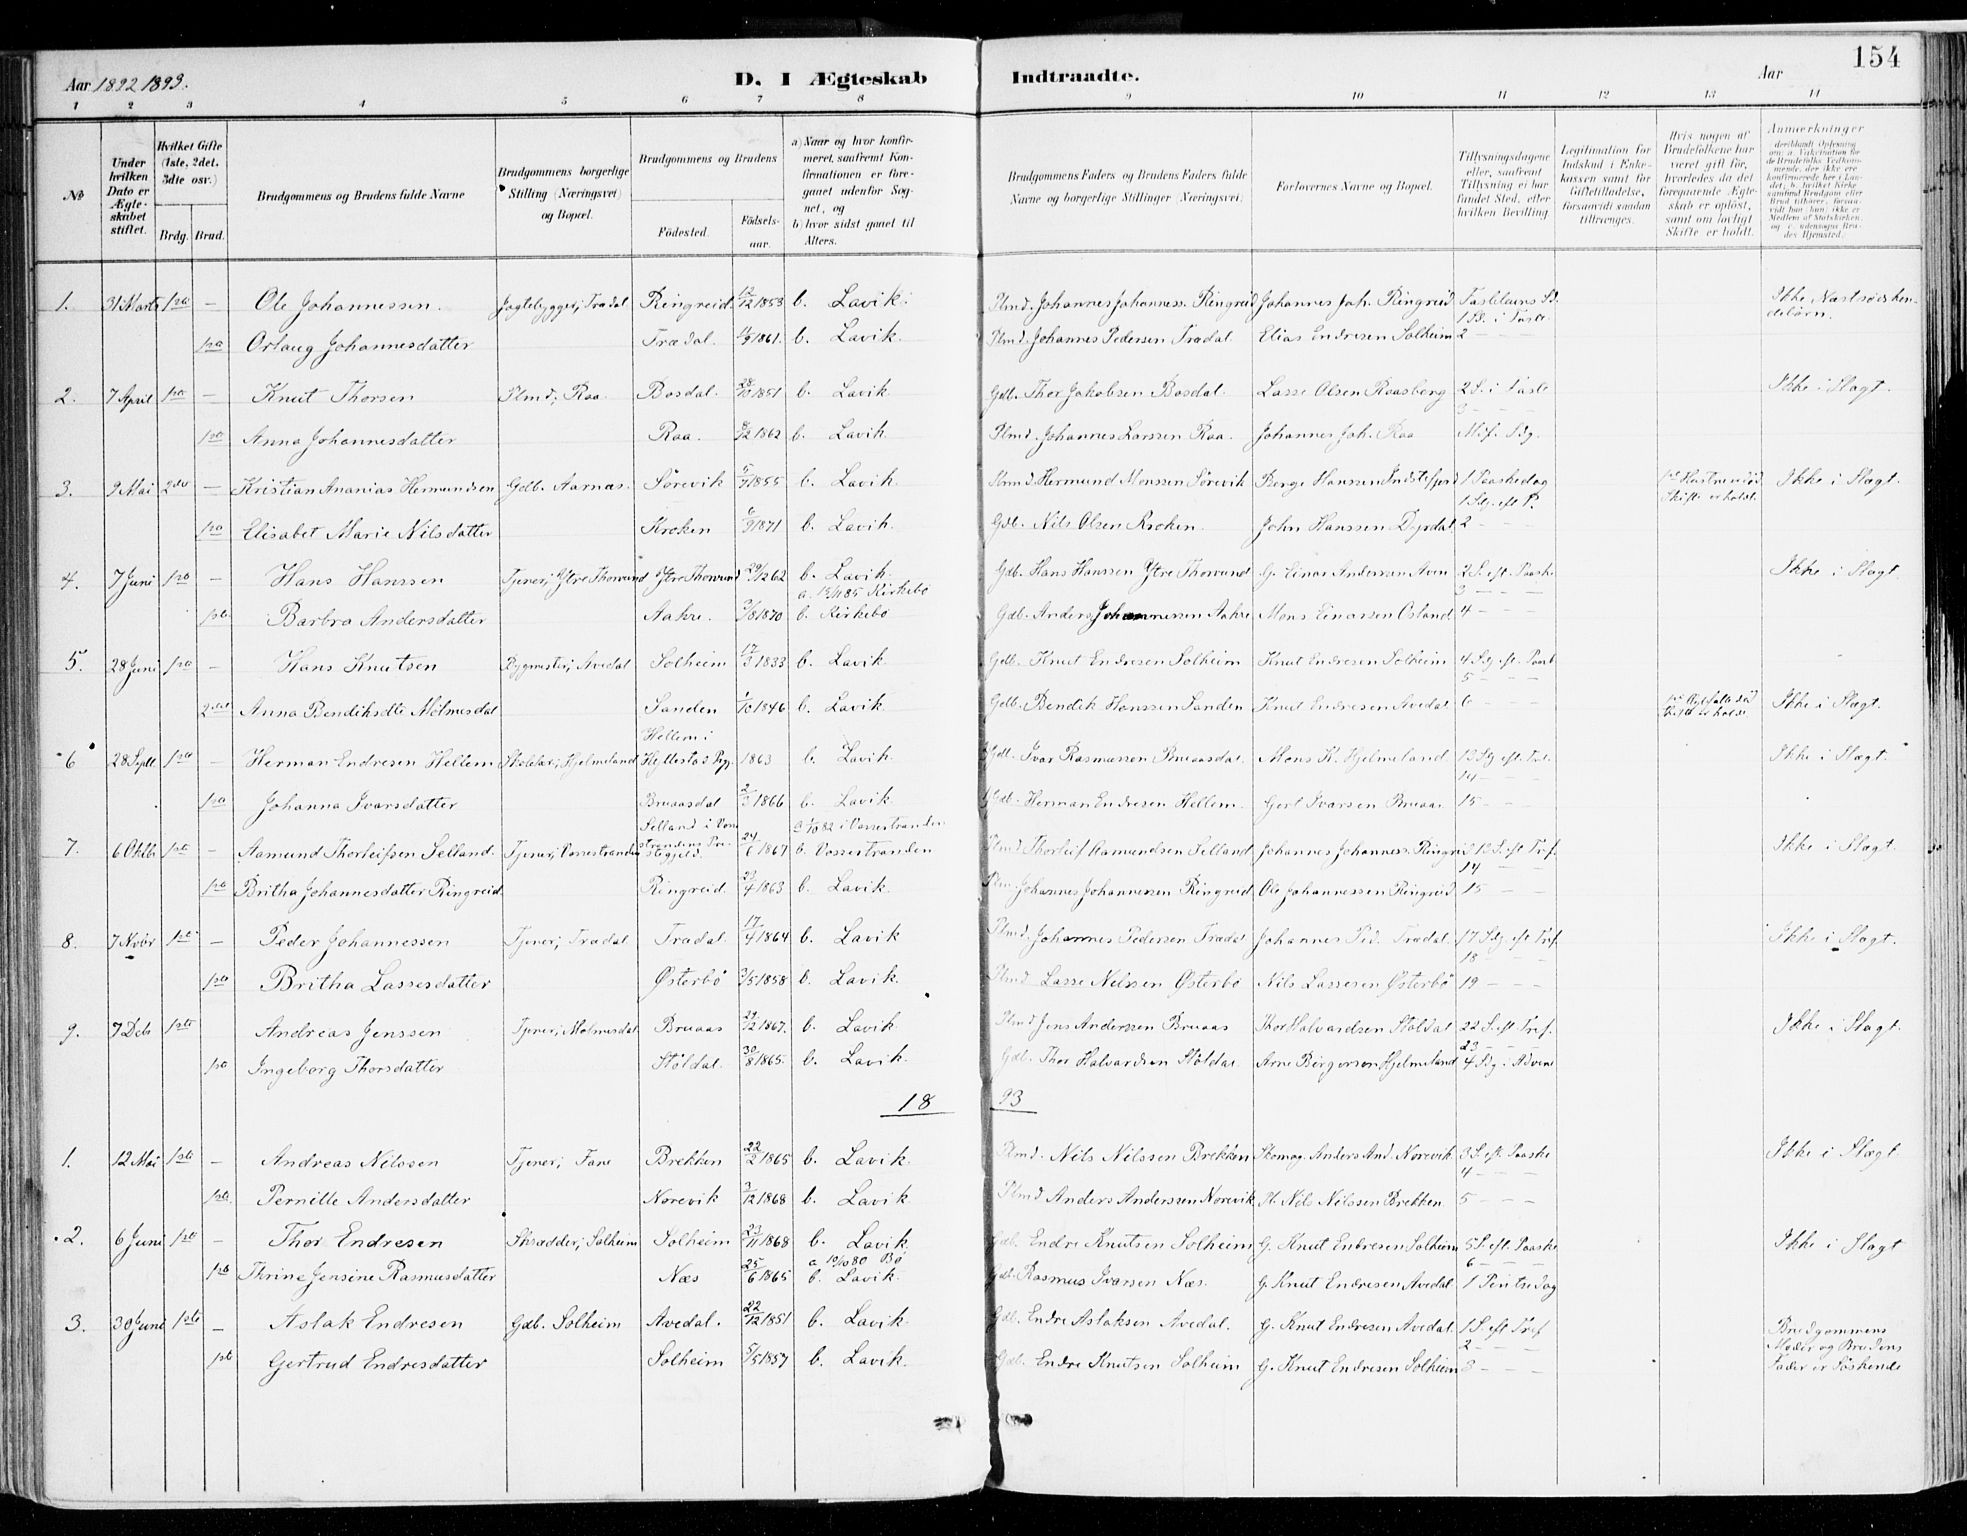 154
Aar 1892 1893. D. I Ægteskab Indtraadte. Aar
1 2 3 4 5 6 7 8 9 10 11 12 13 14
№
Under hvilken Dato er Ægteskabet stiftet.
Hvilket Gifte (1ste, 2det, 3die osv.)
Brdg. Brud.
Brudgommens og Brudens fulde Navne
Brudgommens borgerlige Stilling (Næringsvei) og Bopæl.
Brudgommens og Brudens
Födested. Födsels-aar.
a) Naar og hvor konfirmeret, saafremt Konfirmationen er foregaaet udenfor Sognet, og
b) hvor sidst gaaet til Alters.
Brudgommens Faders og Brudens Faders fulde Navne og borgerlige Stillinger (Næringsvei).
Forlovernes Navne og Bopæl.
Tillysningsdagene eller, saafremt Tillysning ei har fundet Sted, efter hvilken Bevilling.
Legitimation for Indskud i Enkekassen samt for Giftetilladelse, forsaavidt saadan tiltrænges.
Hvis nogen af Brudefolkene har været gift før, hvorledes da det foregaaende Ægteskab er oplöst, samt om lovligt Skifte er holdt.
Anmerkninger
1. 31 Marts 1ste — Ole Johannessen. Jagtebygger, Trædal Ringreid. 12/12 1853 b. Lavik. Plmd. Johannes Johanness. Ringreid Johannes Joh. Ringreid Fastelavns Sd. Ikke Næstsødskendebörn.
1 Sd. i Faste
1ste Orlaug Johannesdatter Trædal. 1861. b. Lavik. Plmd. Johannes Pedersen Trædal. Elias Endresen Solheim 2 — —
2. 7 April 1ste — Knut Thorsen Plmd., Raa. Bosdal. 1851 b. Lavik. Gdb. Thor Jakobsen Bosdal. Lasse Olsen Raasberg 2 S. i Faste Ikke i Slægt.
3 — —
1ste Anna Johannesdatter Raa. 1862 b. Lavik. Plmd. Johannes Larssen Raa. Johannes Joh. Raa Mif. Sdg.
3. 9 Mai 2det — Kristian Ananias Hermundsen Gdb. Aarnæs. Sörevik 1855 b. Lavik. Plmd. Hermund Monssen Sörevik Berge Hanssen Indstefjord 1 Paaskedag Skifte er holdt. Ikke i Slægt.
1 Sdg. eft P.
1ste Elisabet Marie Nilsdatter Kroken 6/9 1871 b. Lavik. Gdb. Nils Olsen Kroken. John Hanssen Dyrdal 2 — —
4. 7 Juni 1ste — Hans Hanssen Tjener, Ytre Thorsund Ytre Thorsund 29/12 62 b. Lavik. Gdb. Hans Hanssen Ytre Thorsund G. Einar Anderssen Aven 2 S. eft. Paaske Ikke i Slægt.
a. 15/11 85 Kirkebø 3 — —
1ste Barbra Andersdatter Aahre. 1870 b. Kirkebø Gdb. Anders Johannessen Aahre Mons Einarssen Osland 4 — —
5. 28 Juni 1ste — Hans Knutsen Bygmester, Avedal Solheim 17/3 1833 b. Lavik. Gdb. Knut Endresen Solheim Knut Endresen Solheim 4 Sdg. eft. Paask
5 — —
2det Anna Bendiksdtr Molmesdal Sanden 1/10 1846 b. Lavik. Gdb. Bendik Hanssen Sanden Knut Endresen Avedal 6 — — Ikke i Slægt.
6 28 Sept 1ste — Herman Endresen Hellem Skolelær., Hjelmeland Hellem i Hyllestad Pgj. 1863 b. Lavik. Gdb. Ivar Rasmussen Bruaasdal Mons K. Hjelmeland 13 Sdg eft. Tref. Ikke i Slægt.
14 — —
1ste Johanna Ivarsdatter Bruaasdal 2/3 1866 b. Lavik. Gdb. Herman Endresen Hellem. Gert Ivarsen Bruaas 15 — —
7. 6 Oktb 1ste — Aamund Thorleifsen Selland. Tjener, Vossestranden Selland i Vossestrandens Prestegjeld. 24/6 1867 a 1/10 82 i Vossestranden b. Vossestranden Plmd Thorleif Aamundsen Selland Johannes Johanness. Ringreid 13 S. eft Tref. Ikke i Slægt.
14 — —
1ste Britha Johannesdatter Ringreid Ringreid. 23/4 1863 b. Lavik. Plm. Johannes Johannessen Ringreid Ole Johannessen Ringreid 15 — —
8. 7 Novbr 1ste — Peder Johannessen Tjener, Trædal. Trædal. 17/4 1864 b. Lavik Plmd. Johannes Pedersen Trædal Johannes Ped. Trædal. 17 Sdg. eft Tref. Ikke i Slægt.
18 — —
1ste Britha Lassesdatter Østerbö 3/5 1858 b. Lavik. Plmd Lasse Nilssen Østerbö Nils Lassesen Østerbö 19 — —
9. 7 Deb 1ste — Andreas Jenssen Tjener, Molmesdal. Bruaas 21/12 1867. b. Lavik Plmd Jens Anderssen Bruaas Thor Halvardsen Stöldal 22 S. eft Tref. Ikke i Slægt.
23 — —
1ste Ingeborg Thorsdatter Stöldal. 30/8 1865. b. Lavik. Gdb. Thor Halvardsen Stöldal. Arne Börgersen Hjelmeland 4 Sdg i Advent
18 93
1. 12 Mai 1ste — Andreas Nilssen Tjener, Fane Brekken 22/2 1865 b. Lavik. Plmd. Nils Nilssen Brekken Skomag. Anders And. Norevik 3 S. eft. Paaske Ikke i Slægt
4 — —
1ste. Pernille Andersdatter Norevik 3/12 1868 b. Lavik Plmd Anders Anderssen Norevik Pl. Nils Nilssen Brekken 5 — —
2. 6 Juni 1ste — Thor Endresen Skrædder, Solheim Solheim 23/11 1868 b. Lavik Gdb. Endre Knutsen Solheim G. Knut Endresen Solheim 5 S. eft. Paaske Ikke i Slægt
6 — —
1ste Thrine Jensine Rasmusdatter Næs 25/6 1865 a 10/10 80 Bø b. Lavik. Gdb. Rasmus Ivarsen Næs. G. Knut Endresen Avedal 1 Pintsedag
3. 30 Juni 1ste — Aslak Endresen Gdb. Solheim Avedal. 22/12 1851 b. Lavik. Gdb. Endre Aslaksen Avedal. G. Knut Endresen Avedal. 1 S. eft Tref Brudgommens Moder og Brudens Fader er Söskende
2 — —
1ste Gertrud Endresdatter Solheim 5/5 1857 b. Lavik. Gdb. Endre Knutsen Solheim G. Knut Endresen Solheim 3 — —